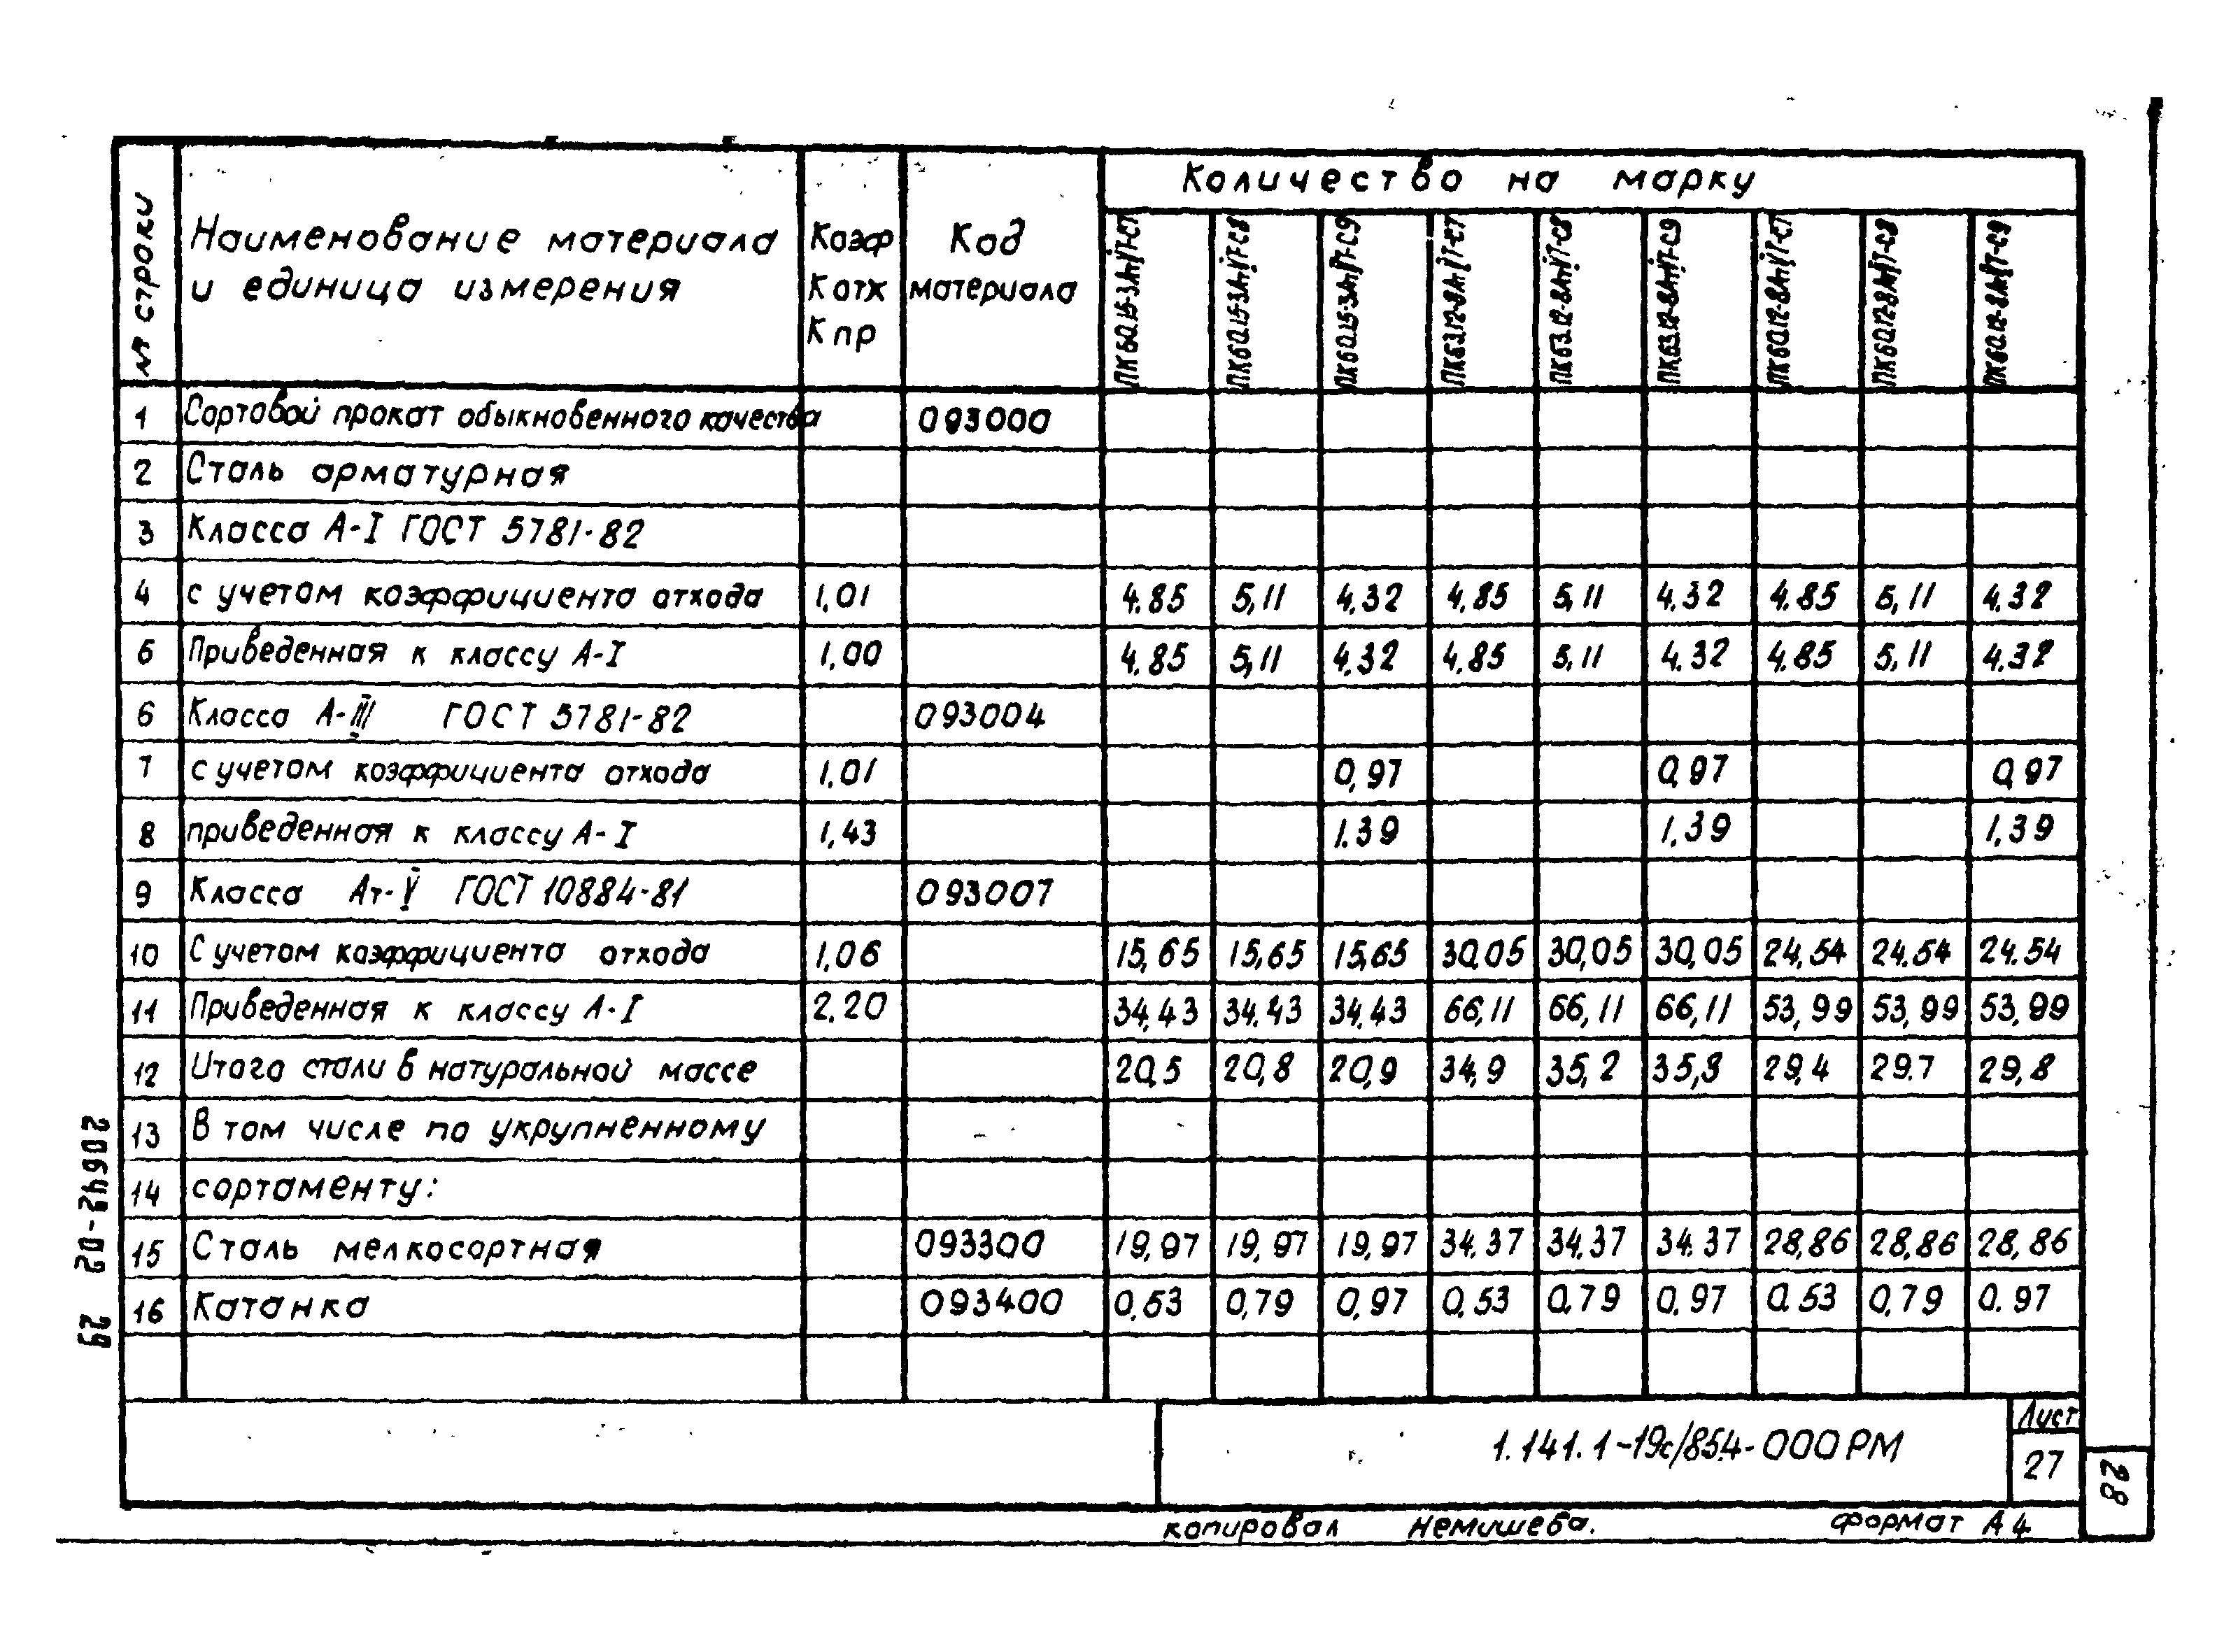 № строки | Наименование материала и единица измерения | Коэф Котх Кпр | Код материала | Количество на марку
ПК60.15-3АтVТ-С7 | ПК60.15-3АтVТ-С8 | ПК60.15-3АтVТ-С9 | ПК63.12-8АтVТ-С7 | ПК63.12-8АтVТ-С8 | ПК63.12-8АтVТ-С9 | ПК60.12-8АтVТ-С7 | ПК60.12-8АтVТ-С8 | ПК60.12-8АтVТ-С9
1 Сортовой прокат обыкновенного качества 093000
2 Сталь арматурная
3 Класса А-I ГОСТ 5781-82
4 с учетом коэффициента отхода 1,01 4.85 5,11 4,32 4,85 5,11 4.32 4.85 5,11 4,32
5 Приведенная к классу А-I 1,00 4.85 5,11 4,32 4,85 5,11 4.32 4,85 5,11 4,32
6 Класса А-III ГОСТ 5781-82 093004
7 с учетом коэффициента отхода 1,01 0,97 0,97 0,97
8 приведенная к классу А-I 1,43 1.39 1,39 1,39
9 Класса Ат-V ГОСТ 10884-81 093007
10 С учетом коэффициента отхода 1,06 15,65 15,65 15,65 30,05 30,05 30,05 24,54 24,54 24.54
11 Приведенная к классу А-I 2,20 34,43 34.43 34.43 66,11 66,11 66,11 53,99 53,99 53,99
12 Итого стали в натуральной массе 20,5 20,8 20,9 34,9 35,2 35,3 29,4 29.7 29,8
13 В том числе по укрупненному
14 сортаменту:
15 Сталь мелкосортная 093300 19,97 19,97 19,97 34.37 34,37 34.37 28,86 28,86 28,86
16 Катанка 093400 0,53 0,79 0,97 0,53 0,79 0,97 0.53 0,79 0.97
20642-02 29
1.141.1-19с/85.4-000РМ
Лист
27
28
копировал Немишева. формат А4